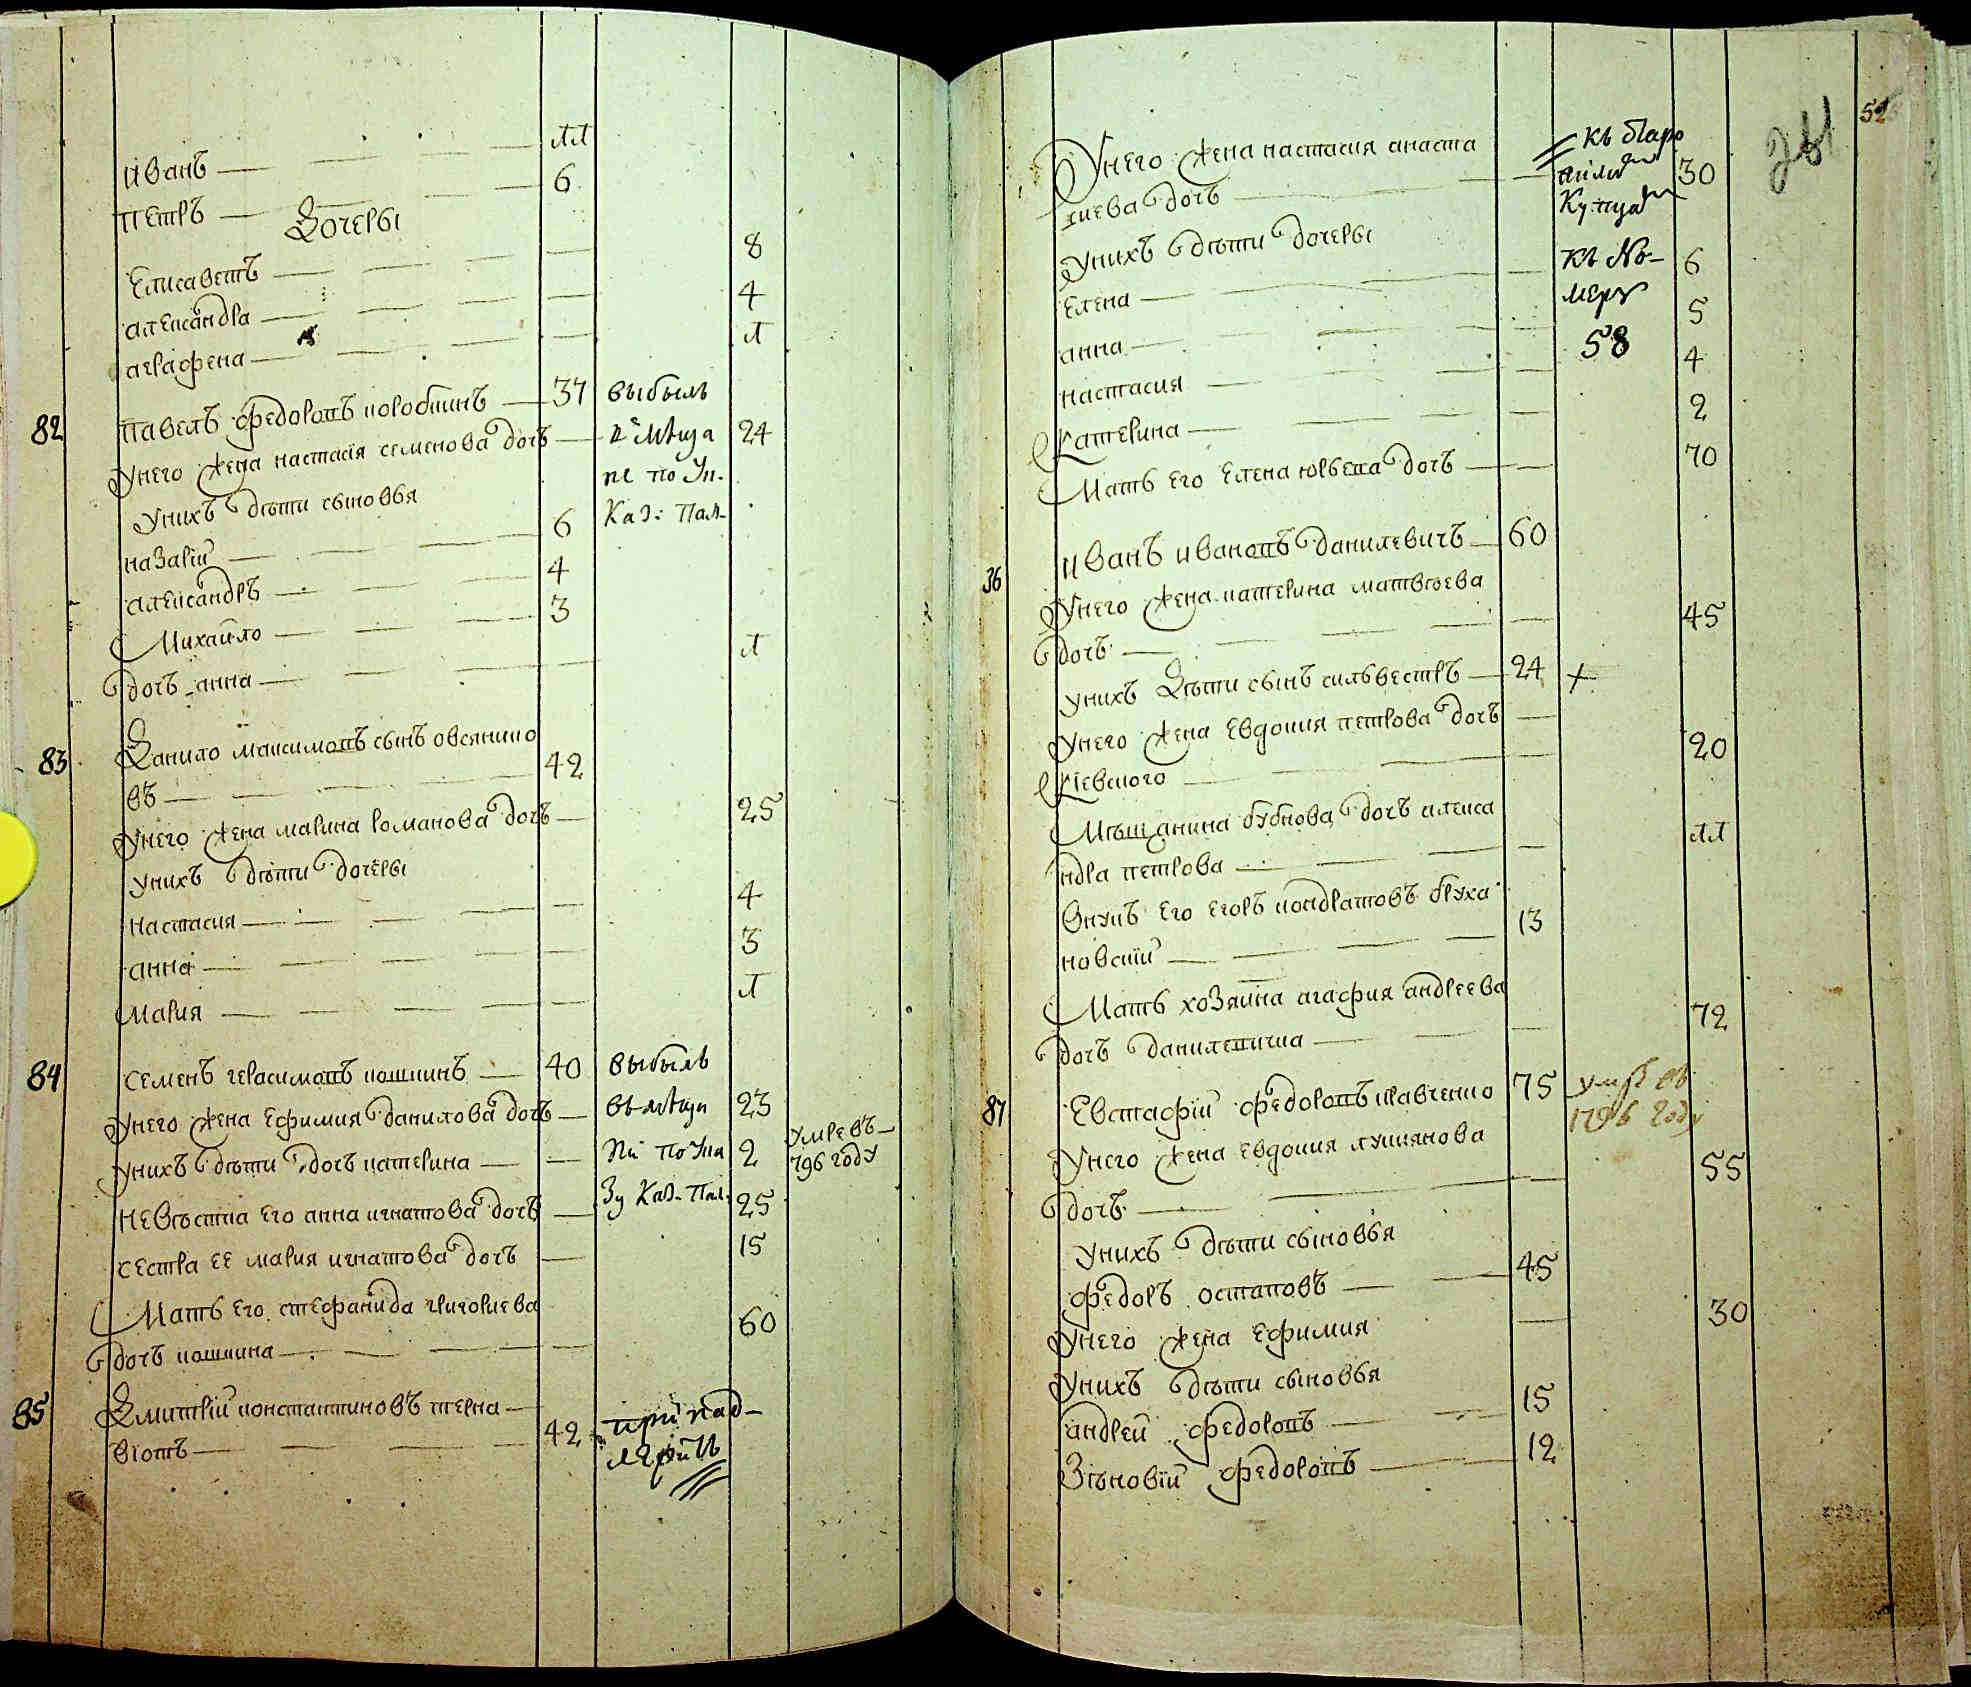 Иванъ — 11
Петръ — 6
Дочеры
Елисаветъ — 8
Александра — 4
Аграфена — 1
82 Павелъ Федоровъ Коробкинъ — 37 выбылъ
Унего жена настасія семенова дочъ — 24
Унихъ дѣти сыновья по Ук.
Назарій — 6 Каз: Пал.
Александръ — 4
Михайло — 3
дочъ анна — 1
83 Данило максимовъ сынъ овсянико
въ — 42
Унего жена марина романова дочъ — 25
Унихъ дѣти дочеры
настасия — 4
анна — 3
Мария — 1
84 Семенъ герасимовъ кошкинъ — 40 выбылъ
Унего жена Ефимия данилова дочъ — 23
Унихъ дѣти дочъ катерина — по Ука 2 умре въ
796 году
Невѣстка его анна игнатова дочъ — зу Каз. Пал. 25
сестра ее мария игнатова дочъ — 15
Матъ его стефанида григориева
дочъ кошкина — 60
85 Дмитрій константиновъ терна —
віотъ — 42
526
Унего жена настасия анаста
сиева дочъ — 30
Купца
Унихъ дѣти дочеры
къ No-
Елена — меру 6
анна — 58 5
настасия — 4
Катерина — 2
Матъ его Елена юрьева дочъ — 70
36 Иванъ ивановъ данилевичъ — 60
Унего жена катерина матвѣева
дочъ — 45
Унихъ Дѣти сынъ силвестръ — 24 +
Унего жена Евдокия петрова дочъ —
Кіевского — 20
Мѣщанина бубнова дочъ алекса
ндра петрова — 11
Внукъ его егоръ кондратовъ бруха
новскій — 13
Матъ хозяина агафия андреева
дочъ данилевича — 72
87 Евстафій федоровъ кравченко 75 умре въ
1796 году
Унего жена Евдокия лукиянова
дочъ — 55
Унихъ дѣти сыновья
федоръ остаповъ — 45
Унего жена Ефимия — 30
Унихъ дѣти сыновья
андрей федоровъ — 15
Зѣновій федоровъ — 12